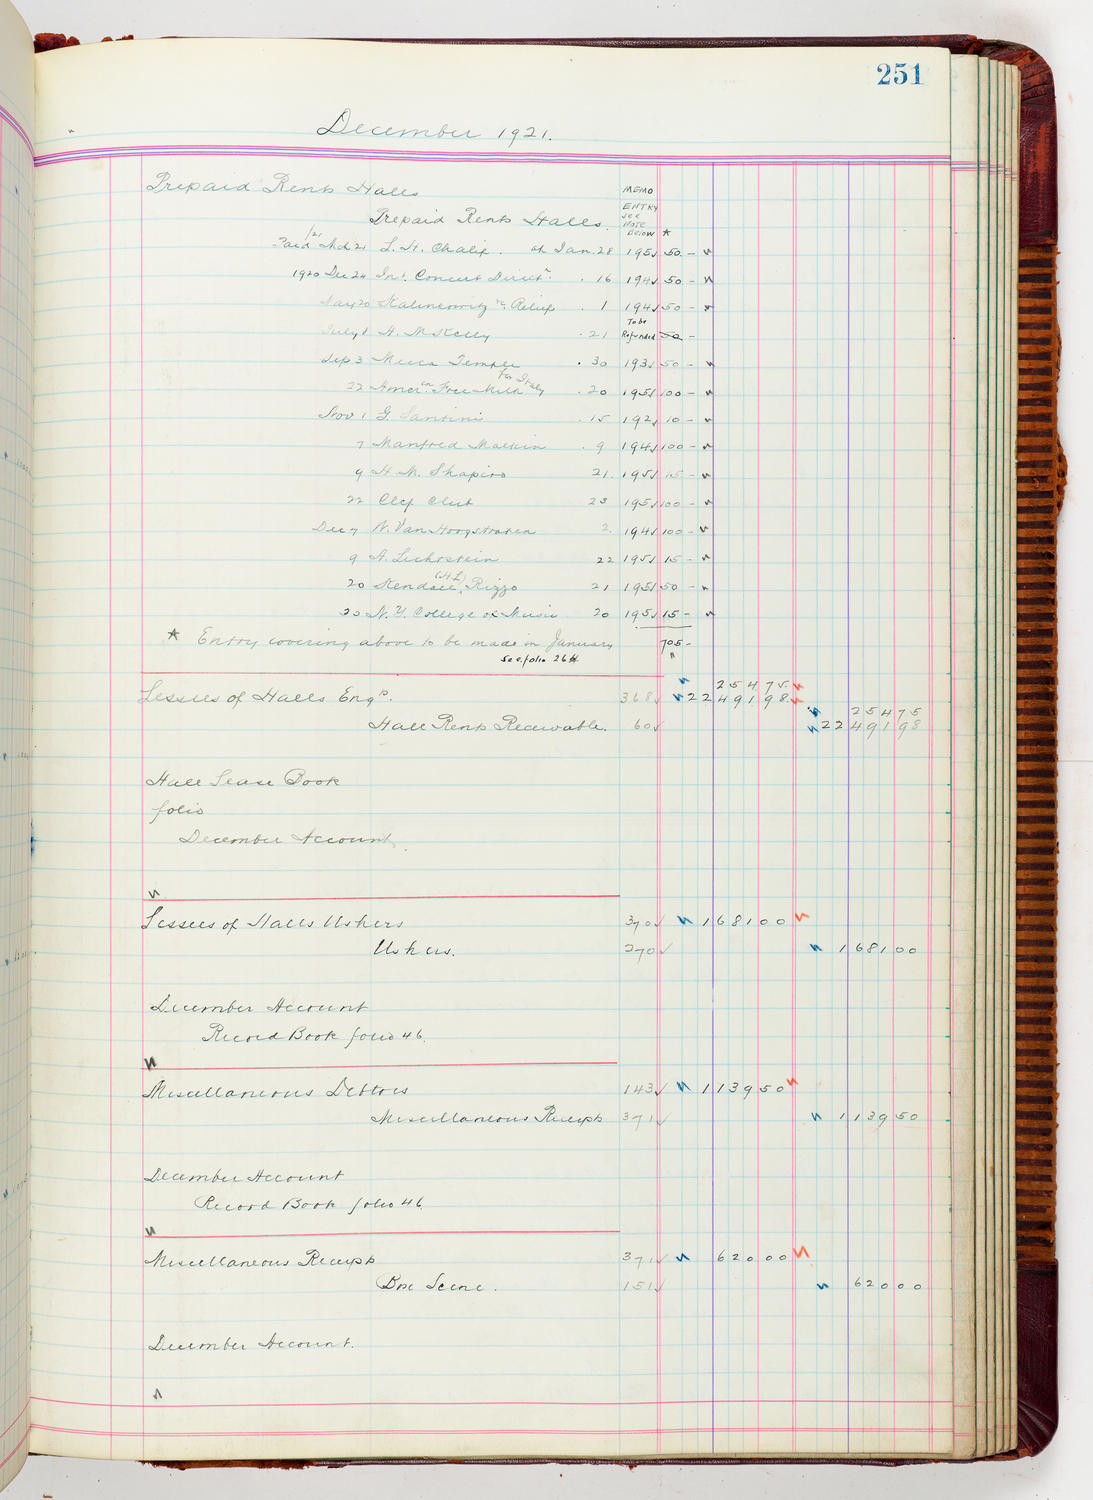 251
December 1921.
Prepaid Rents Halls
MEMO
ENTRY
see
NOTE
Below *
Prepaid Rents Halls.
/21
Paid Mch 21 L. H. Chalif. of Jan. 28 195 50 -
1920 Dec 24 Int. Concert Directn. . 16 194 50 -
May 20 Kalineowitz Relief . 1 194 50 -
To be
Refunded
July 1 H. McKelly . 21 50 -
Sep 3 Mecca Temple . 30 193 50 -
for Italy
22 Amercn. Free Milk . 20 195 100 -
Nov 1 G. Santini . 15 192 10 -
7 Manfred Malkin . 9 194 100 -
9 H. N. Shapiro 21. 195 15 -
22 Clef Club 23 195 100 -
Dec 7 W. Van Hoogstraten 2. 194 100 -
9 A. Lichtstein 22 195 15 -
20 Kendall, Rizzo 21 195 50 -
20 N.Y. College of Music 20 195 15 -
* Entry covering above to be made in January 705 -
See folio 264
25475
Lessees of Halls Engs. 368 2249198
25475
Hall Rents Receivable. 60 2249198
Hall Lease Book
folio
December Account.
Lessees of Halls Ushers 370 168100
Ushers. 270 168100
December Account
Record Book folio 46.
Miscellaneous Debtors 143 113950
Miscellaneous Receipts 371 113950
December Account
Record Book folio 46.
Miscellaneous Receipts 371 62000
Box Scene. 151 62000
December Account.